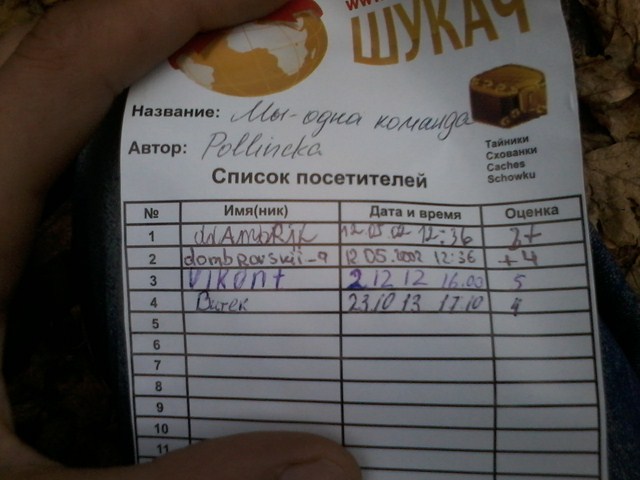 www.
ШУКАЧ
Название: Мы-одна команда
Автор: Pollincka
Тайники
Схованки
Caches
Schowku
Список посетителей
№ Имя(ник) Дата и время Оценка
1 12:36
2 dombrovskii-a 12 05.2002 12:36 +4
3 Vikont 2 12 12 16.00 5
4 Витек 23.10 13 17.10
5
6
7
8
9
10
11